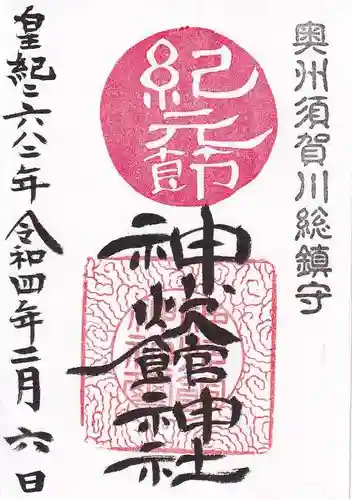 奥州須賀川総鎮守
紀元節
神炊館神社
皇紀二六八二年 令和四年二月六日